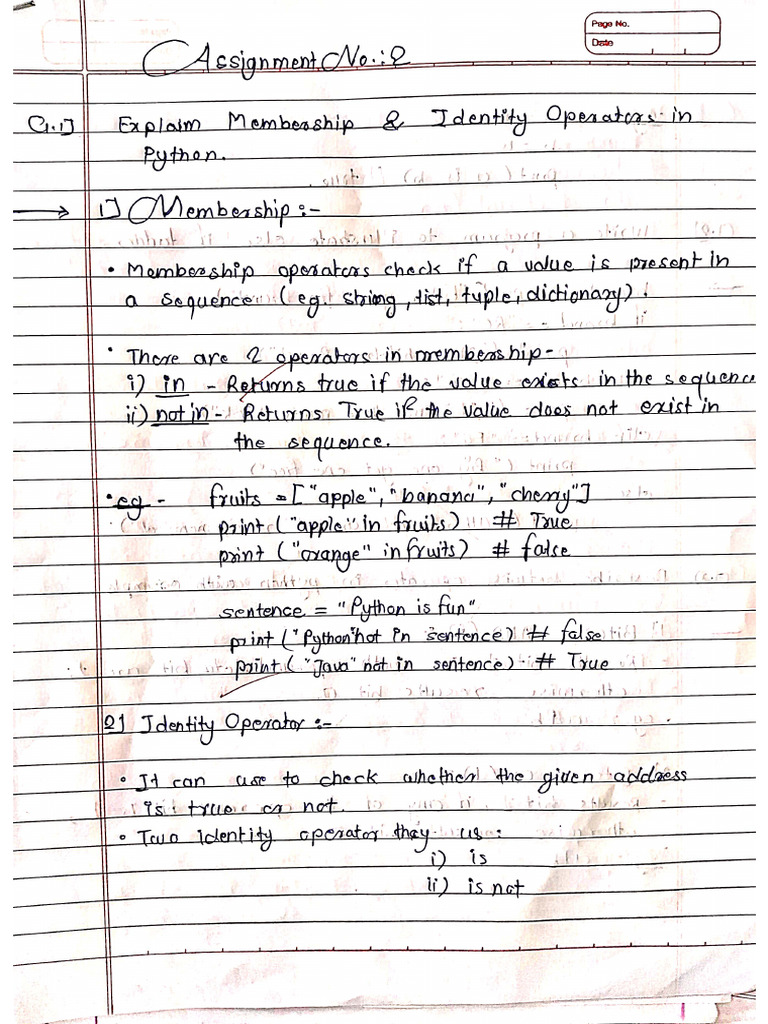 Page No.
Date
Assignment No.: 2
Q.1] Explaim Membership & Identity Operators in
Python.
→ 1] Membership :-
• Membership operators check if a value is present in
a sequence (eg. string, list, tuple, dictionary).
• There are 2 operators in membership -
i) in - Returns true if the value exists in the sequence
ii) not in - Returns True if the value does not exist in
the sequence.
• eg - fruits = ["apple", "banana", "cherry"]
print ("apple" in fruits) # True
print ("orange" in fruits) # false
sentence = "Python is fun"
print ("Python" not in sentence) # false
print ("Java" not in sentence) # True
2] Identity Operator :-
• It can use to check whether the given address
is true or not.
• Two identity operator they us :
i) is
ii) is not